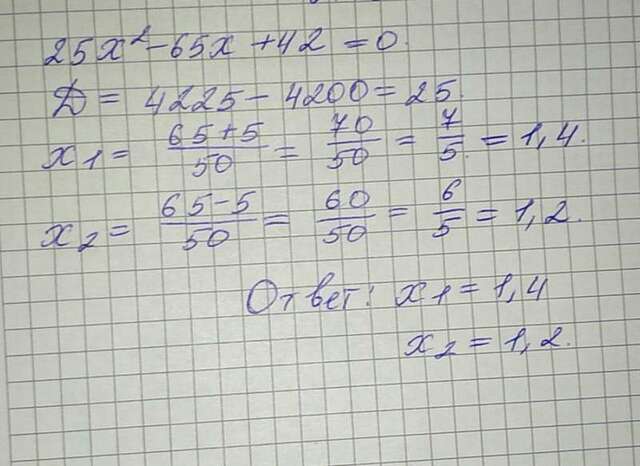 25x² - 65x + 42 = 0.
D = 4225 - 4200 = 25.
x₁ = (65+5)/50 = 70/50 = 7/5 = 1,4.
x₂ = (65-5)/50 = 60/50 = 6/5 = 1,2.
Ответ: x₁ = 1,4
x₂ = 1,2.